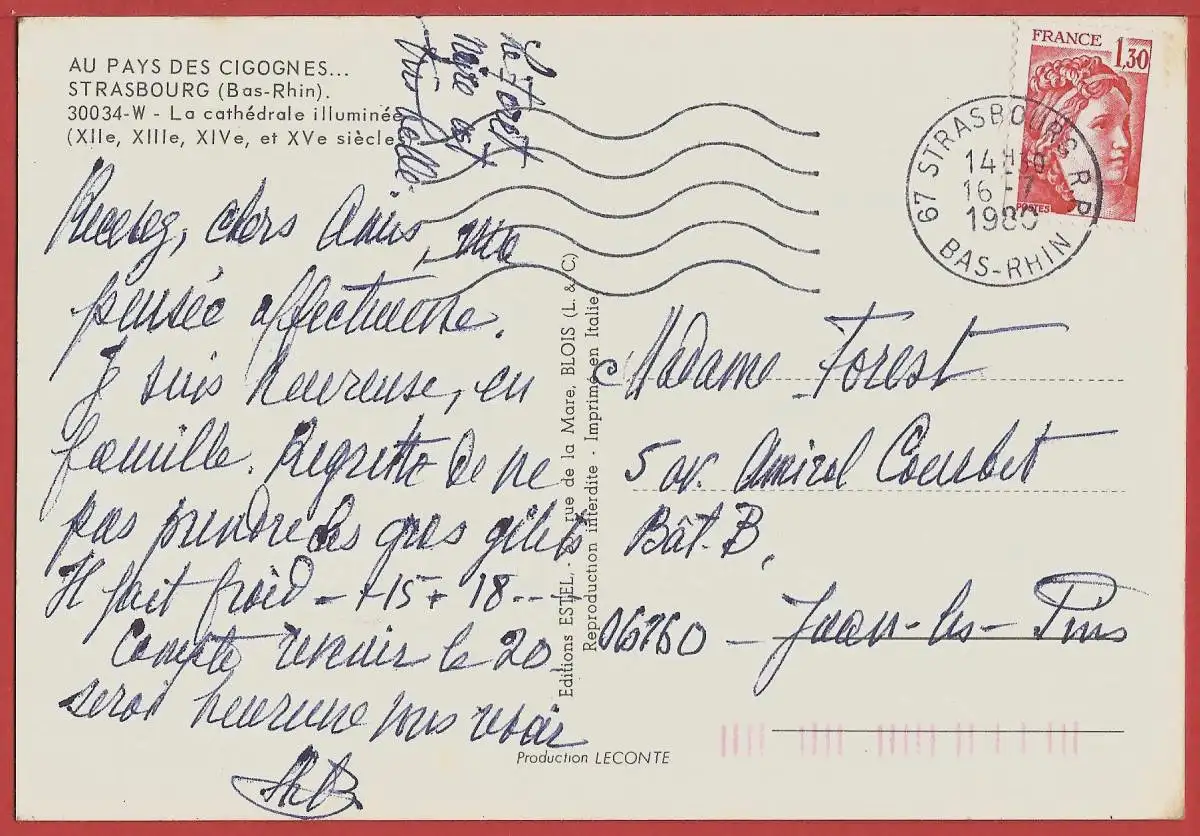 AU PAYS DES CIGOGNES...
STRASBOURG (Bas-Rhin).
30034-W - La cathédrale illuminée
(XIIe, XIIIe, XIVe, et XVe siècles)
La Forêt
Noire est
très belle.
Recevez, chers Amis, ma
pensée affectueuse.
Je suis heureuse, en
famille. Regrette de ne
pas prendre les gros gilets
Il fait froid - +15 + 18 --
Compte revenir le 20
serai heureuse vous revoir
Editions ESTEL, rue de la Mare, BLOIS (L. & C)
Reproduction interdite - Imprimé en Italie
Production LECONTE
FRANCE
1,30
POSTES
67 STRASBOURG R.P.
14H30
16-7
1980
BAS-RHIN
Madame Forest
5 av. Amiral Courbet
Bât. B,
06160 - Juan-les-Pins